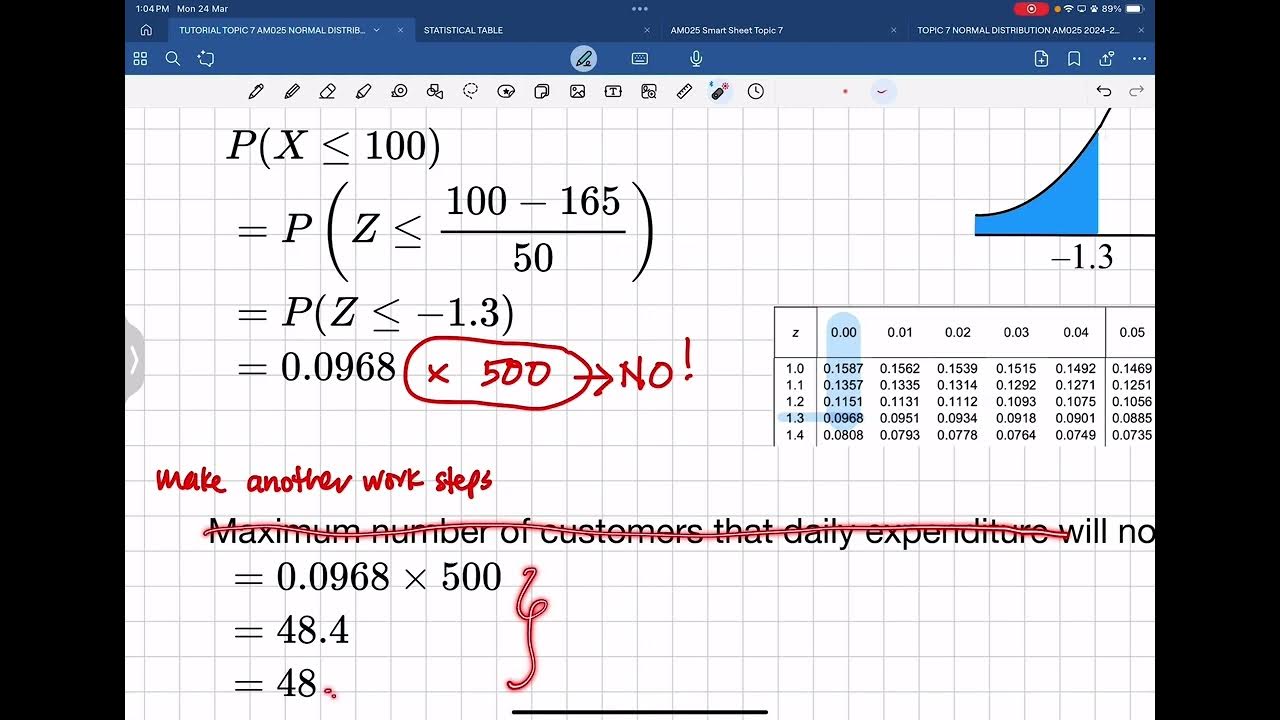 1:04 PM Mon 24 Mar
89%
TUTORIAL TOPIC 7 AM025 NORMAL DISTRIB...
STATISTICAL TABLE
AM025 Smart Sheet Topic 7
TOPIC 7 NORMAL DISTRIBUTION AM025 2024-2...
P(X ≤ 100)
= P(Z ≤ (100 − 165)/50)
−1.3
= P(Z ≤ −1.3)
= 0.0968 × 500 → NO!
z 0.00 0.01 0.02 0.03 0.04 0.05
1.0 0.1587 0.1562 0.1539 0.1515 0.1492 0.1469
1.1 0.1357 0.1335 0.1314 0.1292 0.1271 0.1251
1.2 0.1151 0.1131 0.1112 0.1093 0.1075 0.1056
1.3 0.0968 0.0951 0.0934 0.0918 0.0901 0.0885
1.4 0.0808 0.0793 0.0778 0.0764 0.0749 0.0735
make another work steps
Maximum number of customers that daily expenditure will no
= 0.0968 × 500
= 48.4
= 48